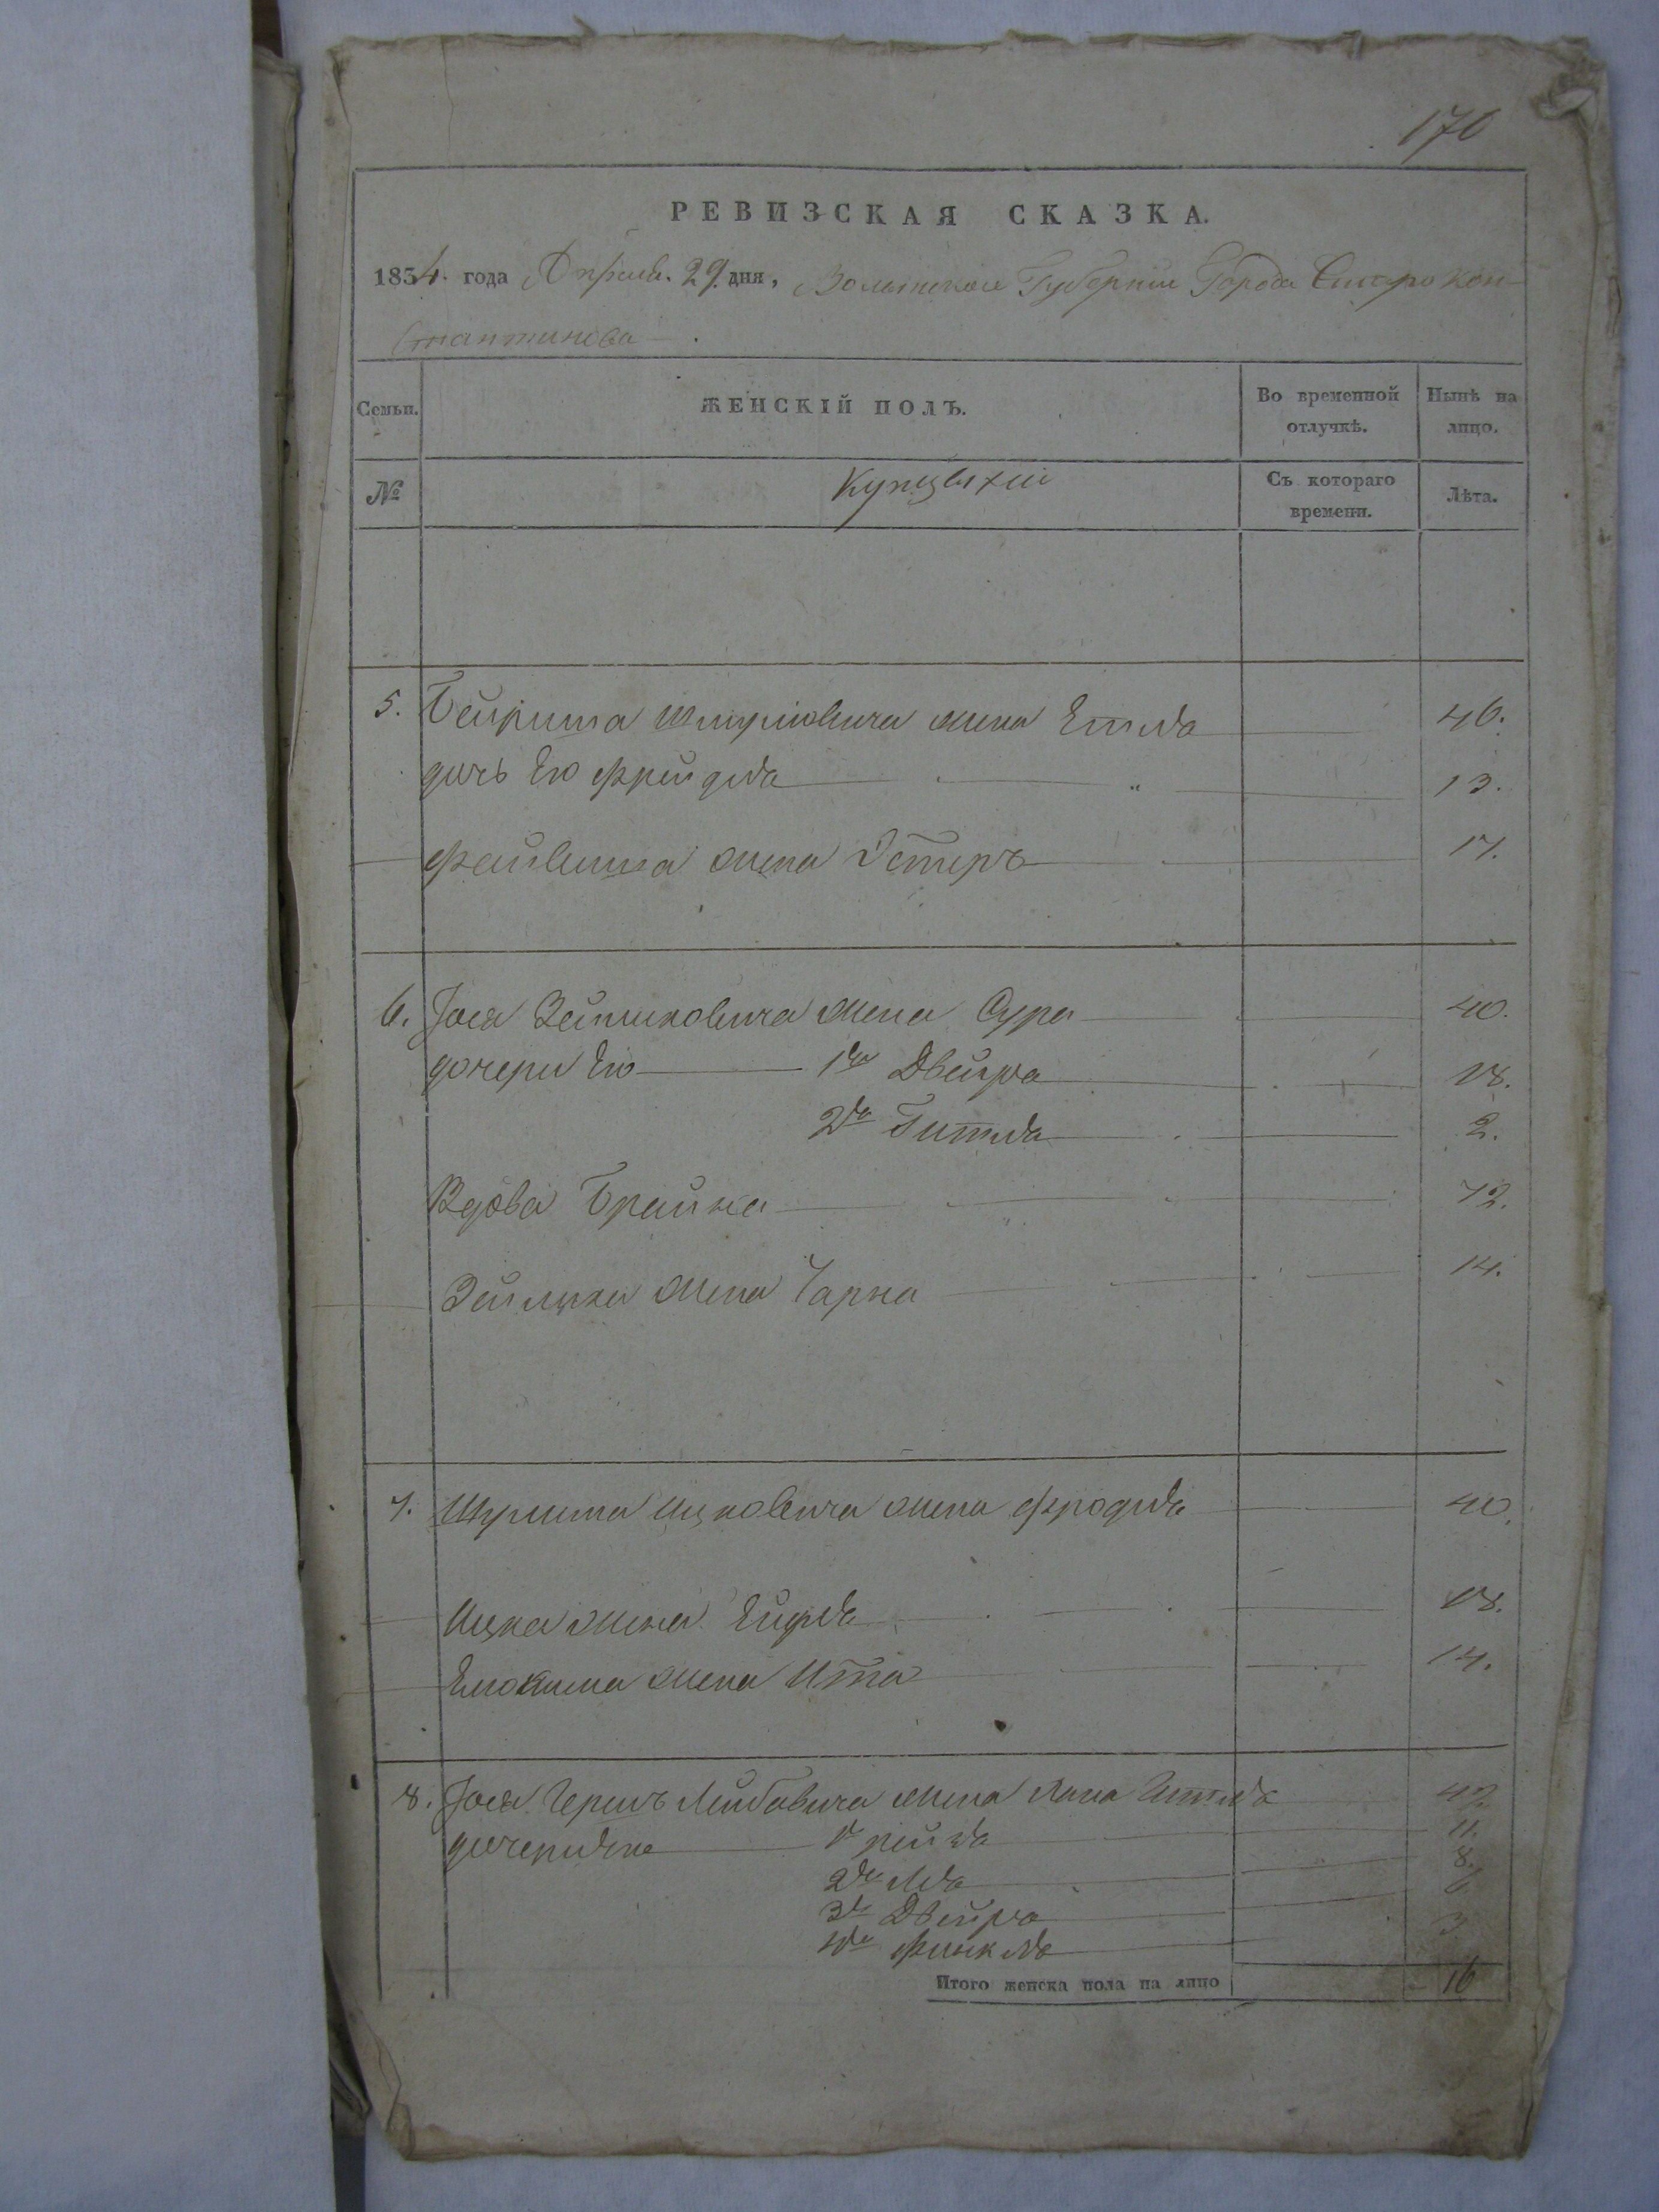 170
РЕВИЗСКАЯ СКАЗКА.
1834. года Апреля. 29. дня, Волынской Губернии Города Старокон-
стантинова
Семьи. ЖЕНСКІЙ ПОЛЪ. Во временной отлучкѣ. Нынѣ на лицо.
№ Купцы Съ котораго времени. Лѣта.
5. Бейриша Шмулювича жена Етля 46.
дочь Его Фрейдля 13.
Файвиша жена Эстеръ 17.
6. Іося Зейликовича жена Сура 40.
дочери Его 1я Двейра 18.
2я Гитля 2.
Вдова Брайна 72.
Зейлика жена Чарна 14.
7. Шулима Ицковича жена Фродля 40.
Ицка жена Ейдля 18.
жена Ита 14.
8. Іося Гершъ Лейбовича жена Хана Итля 42
дочери 1я Рейзя 11.
2я Лея 8.
3я Двейра 6
4я Финкля 3
Итого женска пола на лицо 16